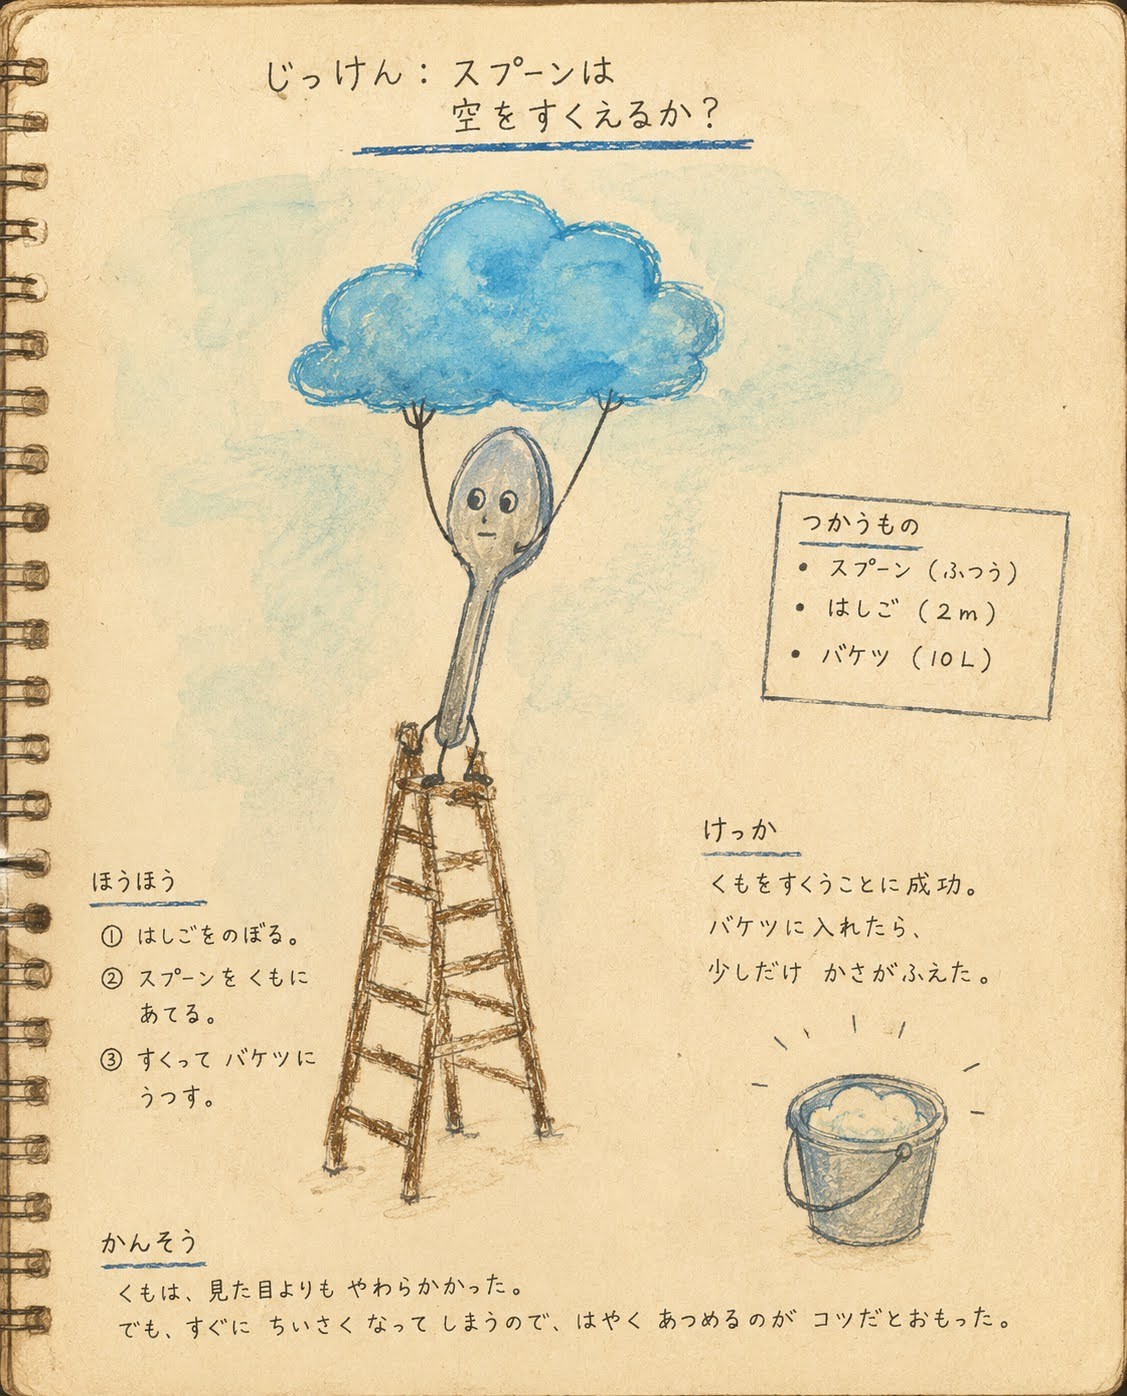 じっけん：スプーンは
空をすくえるか？
つかうもの
• スプーン（ふつう）
• はしご（2m）
• バケツ（10L）
ほうほう
① はしごをのぼる。
② スプーンを くもに
あてる。
③ すくって バケツに
うつす。
けっか
くもをすくうことに成功。
バケツに入れたら、
少しだけ かさがふえた。
かんそう
くもは、見た目よりも やわらかかった。
でも、すぐに ちいさく なって しまうので、はやく あつめるのが コツだとおもった。